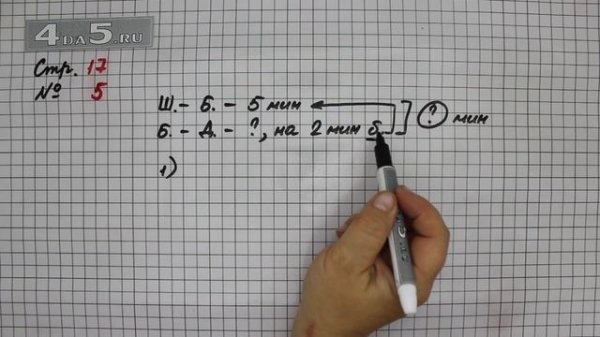 4DA5.RU
Стр. 17
№ 5
Ш. - Б. - 5 мин
Б. - Д. - ?, на 2 мин б. ? мин
1)